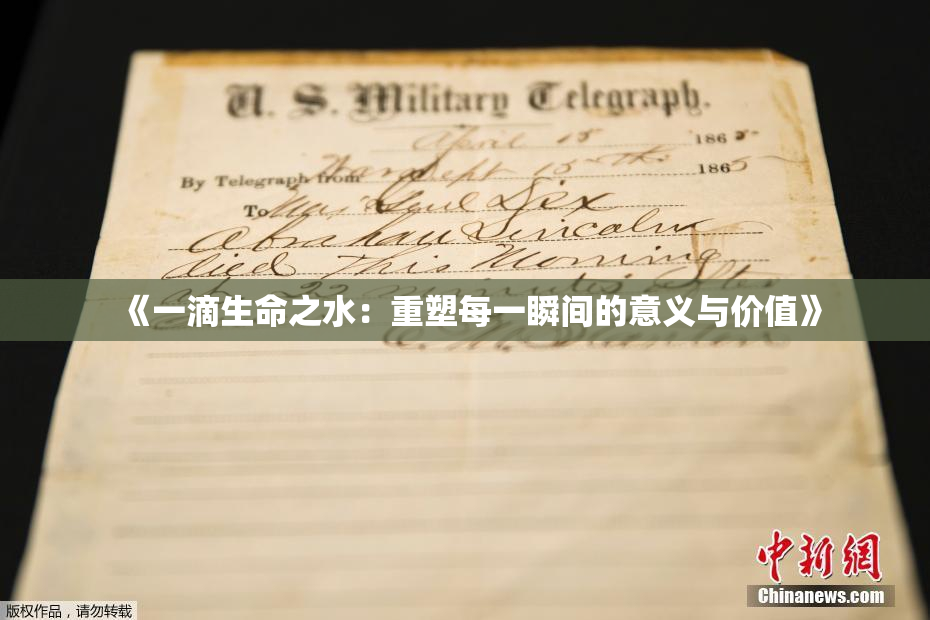 U. S. Military Telegraph.
April 15 1865
By Telegraph from War Dept 15th 1865
To Maj Genl Dix
Abraham Lincoln
died This Morning
at 22 minutes after
《一滴生命之水：重塑每一瞬间的意义与价值》
中新网
Chinanews.com
版权作品，请勿转载